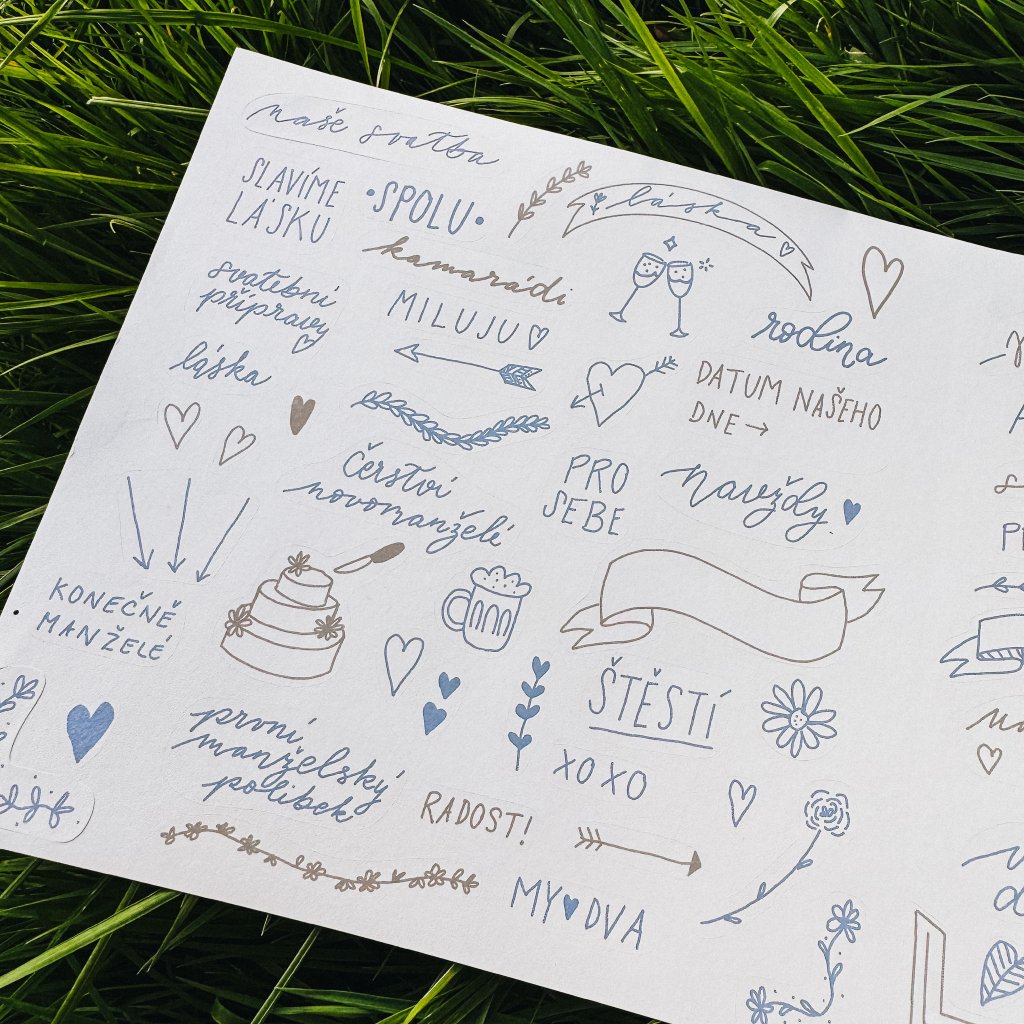 naše svatba
SLAVÍME
LÁSKU
•SPOLU•
láska
kamarádi
svatební
přípravy
MILUJU
rodina
láska
DATUM NAŠEHO
DNE →
čerství
novomanželé
PRO
SEBE
navždy
KONEČNĚ
MANŽELÉ
ŠTĚSTÍ
první
manželský
polibek
XOXO
RADOST!
MY DVA